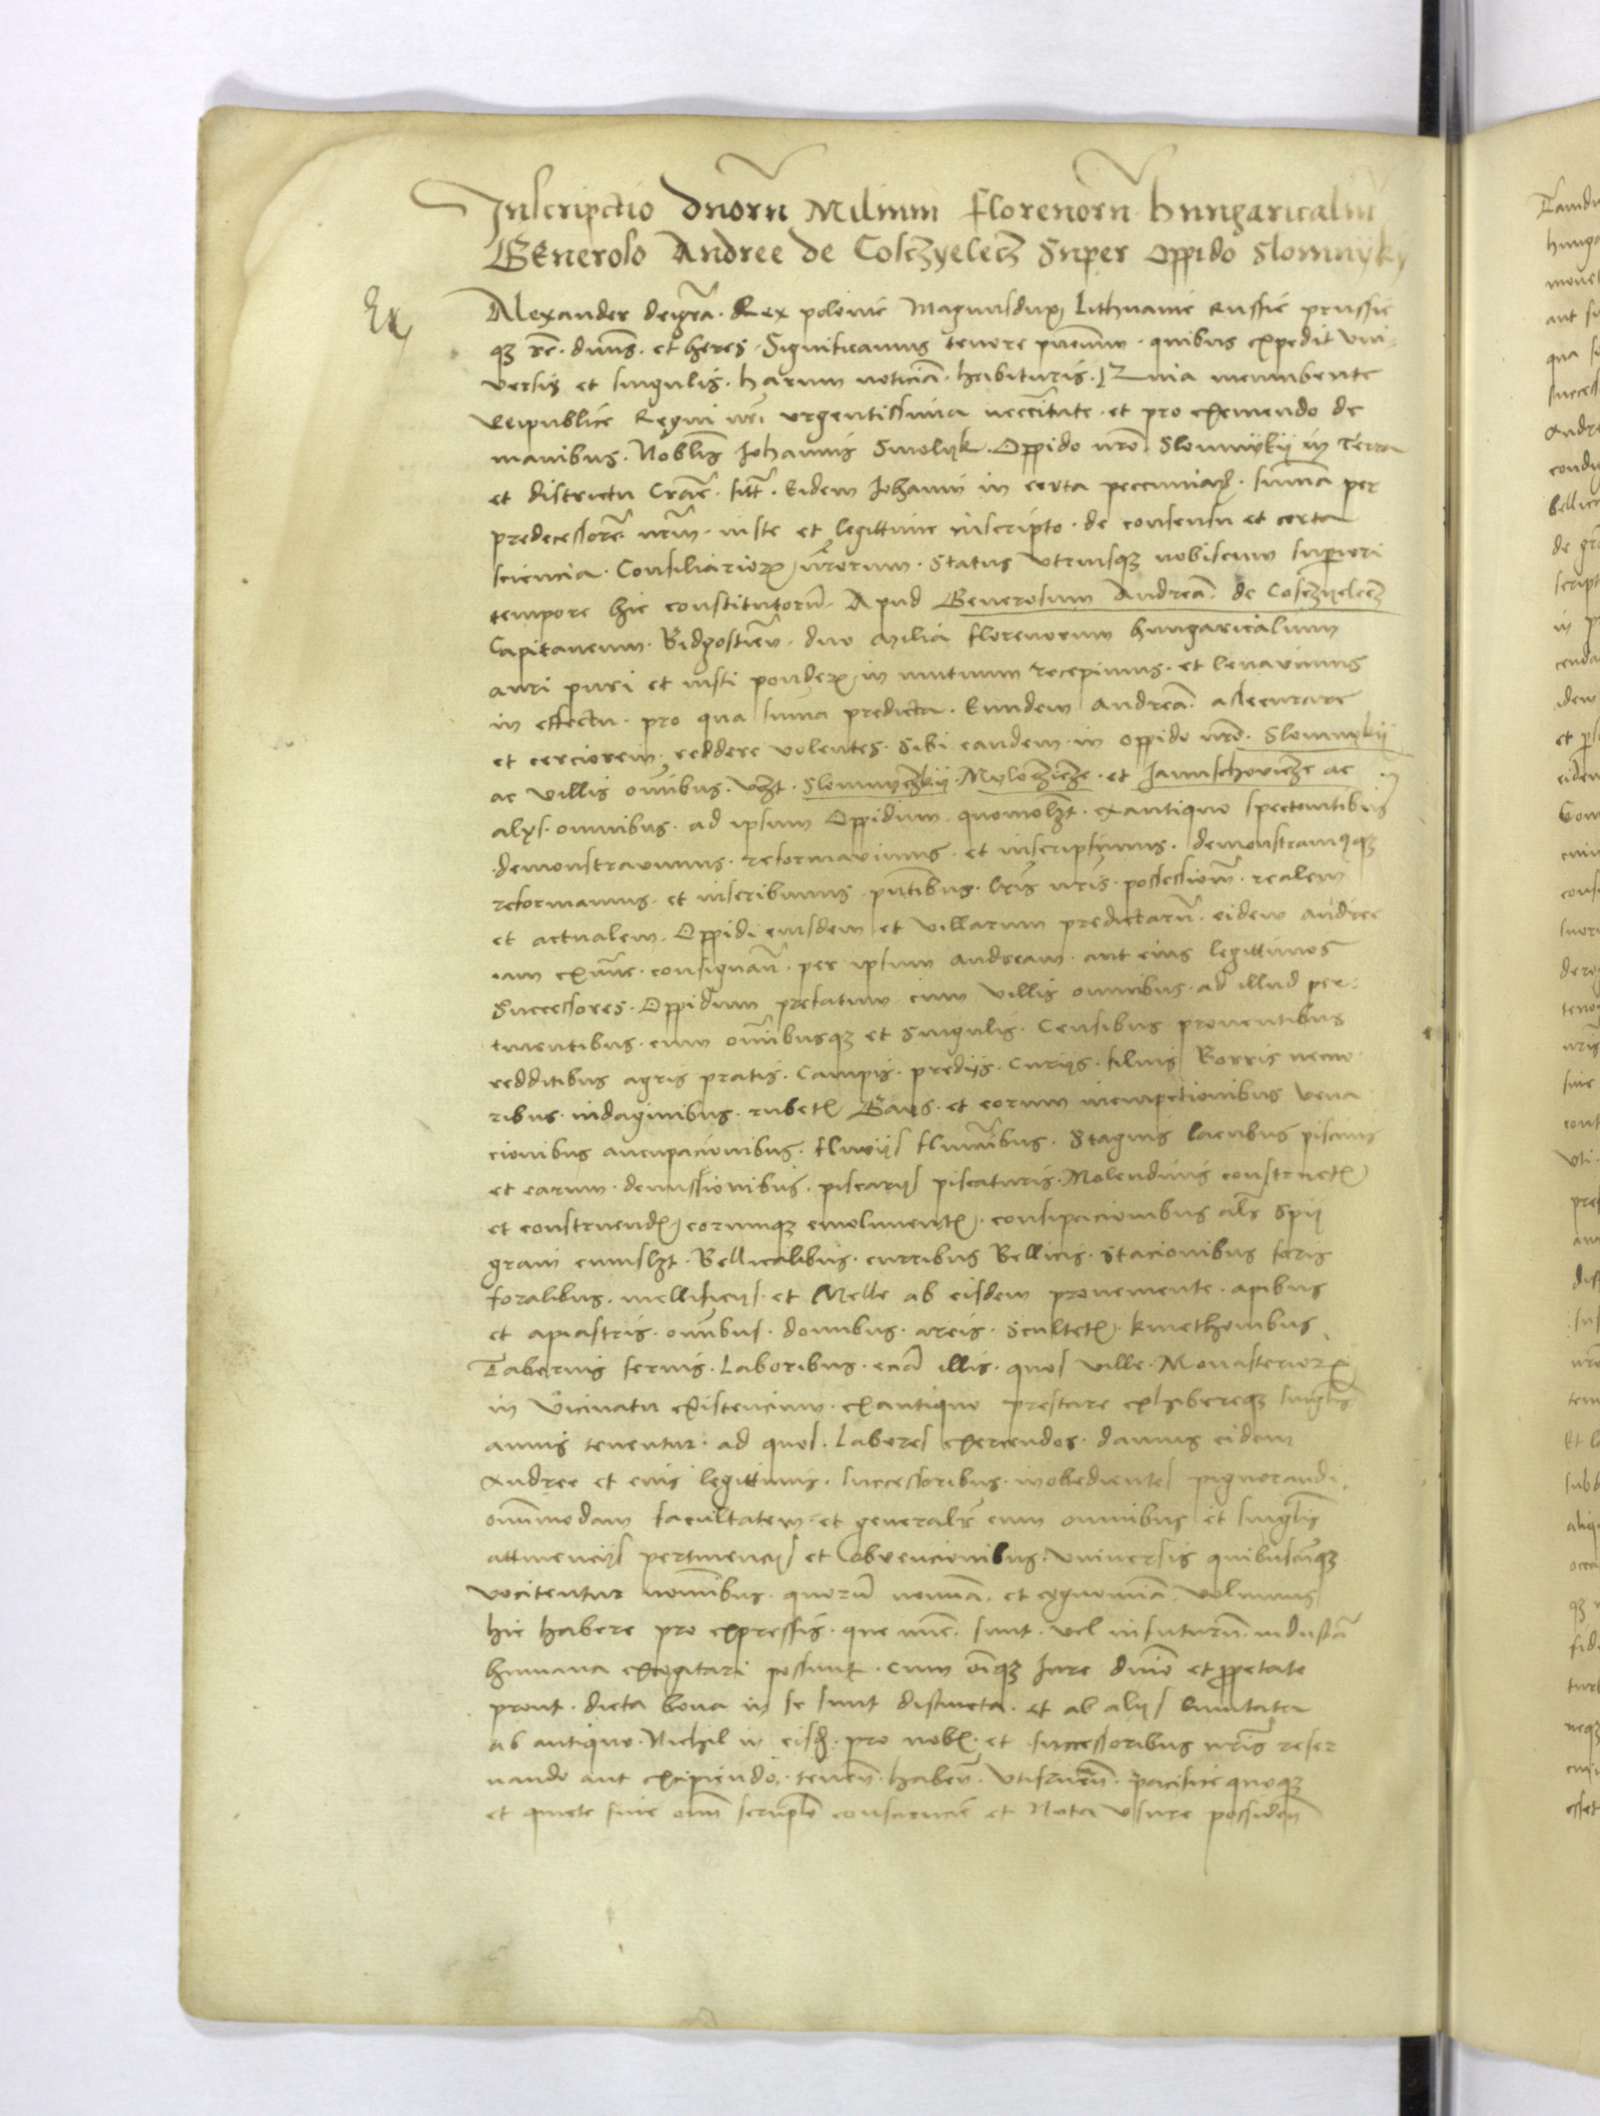 Inscripctio duorũ Milium florenorũ hungaricaliũ
GEneroso Andree de Cosczyelecz Super Oppido Slomnyky
Ex
Alexander deigrã. Rex polonie Magnusdux Lithuanie Russie prussie
qz rẽ. dnus. et heres. Significamus tenore pñcium. quibus expedit uni
versis et singulis. harum noticiã. habituris. Quia incumbente
Reipublice Regni nrĩ urgentissima neccitate. et pro eximendo de
manibus. Noblis Johannis Smolyk. Oppido nrõ. Slomnykij in Terra
et districtu Craĉ. sitt. Eidem Johanni in certa peccuniaȝ. summa per
predecessorẽ nrũm. iuste et legittime inscripto. de consensu et certa
sciencia. Consiliarioꝝ nrorum. Status utriusqz nobiscum superiori
tempore hic constitutorũ. Apud Generosum Andreã. de Cosczyelecz
Capitaneum. Bidgostieñ. duo milia florenorum hungaricalium
auri puri et iusti ponderꝭ in mutuum recepimus. et levavimus
in effectu. pro qua suma predicta. Eundem Andreã. assecurare
et cerciorem reddere volentes. Sibi eandem in oppido nrõ. Slomnykij
ac villis omibus. vzt. Slomnyczkij. Myloczicze. et Januschovicze ac
alys. omnibus. ad ipsum Oppidum quomolzt. exantiquo spectantibus
demonstravimus. reformavimus. et inscripsimus. demonstramusqz
reformamus. et inscribimus pntibus. lris nris. possessionẽ. realem
et actualem. Oppidi eiusdem et villarum predictarũ. eidem Andree
iam extunc. consignañ. per ipsum Andream. aut eius legittimos
Successores. Oppidum prefatum cum villis omnibus. ad illud per-
tinentibus. cum omibusqz et Singulis. Censibus proventibus
redditibus agris pratis. Campis. predijs. Curijs. silvis Borris nemo
ribus. indaginibus. rubetꝭ Gays. et eorum incisionibus vena
cionibus aucupacionibus. fluvijs fluminibus. Stagnis lacubus piscinis
et earum. demissionibus. piscarijs piscaturis. Molendinis constructꝭ
et construendꝭ eorumqz emolumentꝭ. consipacionibus als Spij
grani cuiuslzt. Bellicalibus. curribus Bellicis. Stacionibus foris
foralibus. mellificijs. et Melle ab eisdem proveniente. apibus
et apiastris. omibus. domibus. areis. Scultetꝭ. kmethonibus
Tabernis servis. Laboribus. eciã illis. quos ville. Monasterioꝝ
in vicinatu existencium. exantiquo prestare exhibereqz singlis
annis tenentur. ad quos. labores exercendos. damus eidem
Andree et eius legittimis. successoribus. inobedientes pignorandi
omimodam facultatem. et generalr̃ cum omnibus et singlis
attinencijs pertinencijs et obvencionibus. universis quibuscunqz
vocitentur nomibus. quorũ nomina. et cognomina volumus
hic habere pro expressis. que nunc. sunt. vel infuturũ. industriã
humana excogitari possunt. Cum omiqz Jure dnio et proprietate
prout. dicta bona in se sunt distincta. et ab alijs limitata
ab antiquo. Nichil in eisdꝭ. pro nobꝭ. et successoribus nris reser
vando aut excipiendo. teneñ. habeñ. utifrueñ. pacifice quoqz
et quiete sine omi scruplo consciencie et Nota usure possideñ